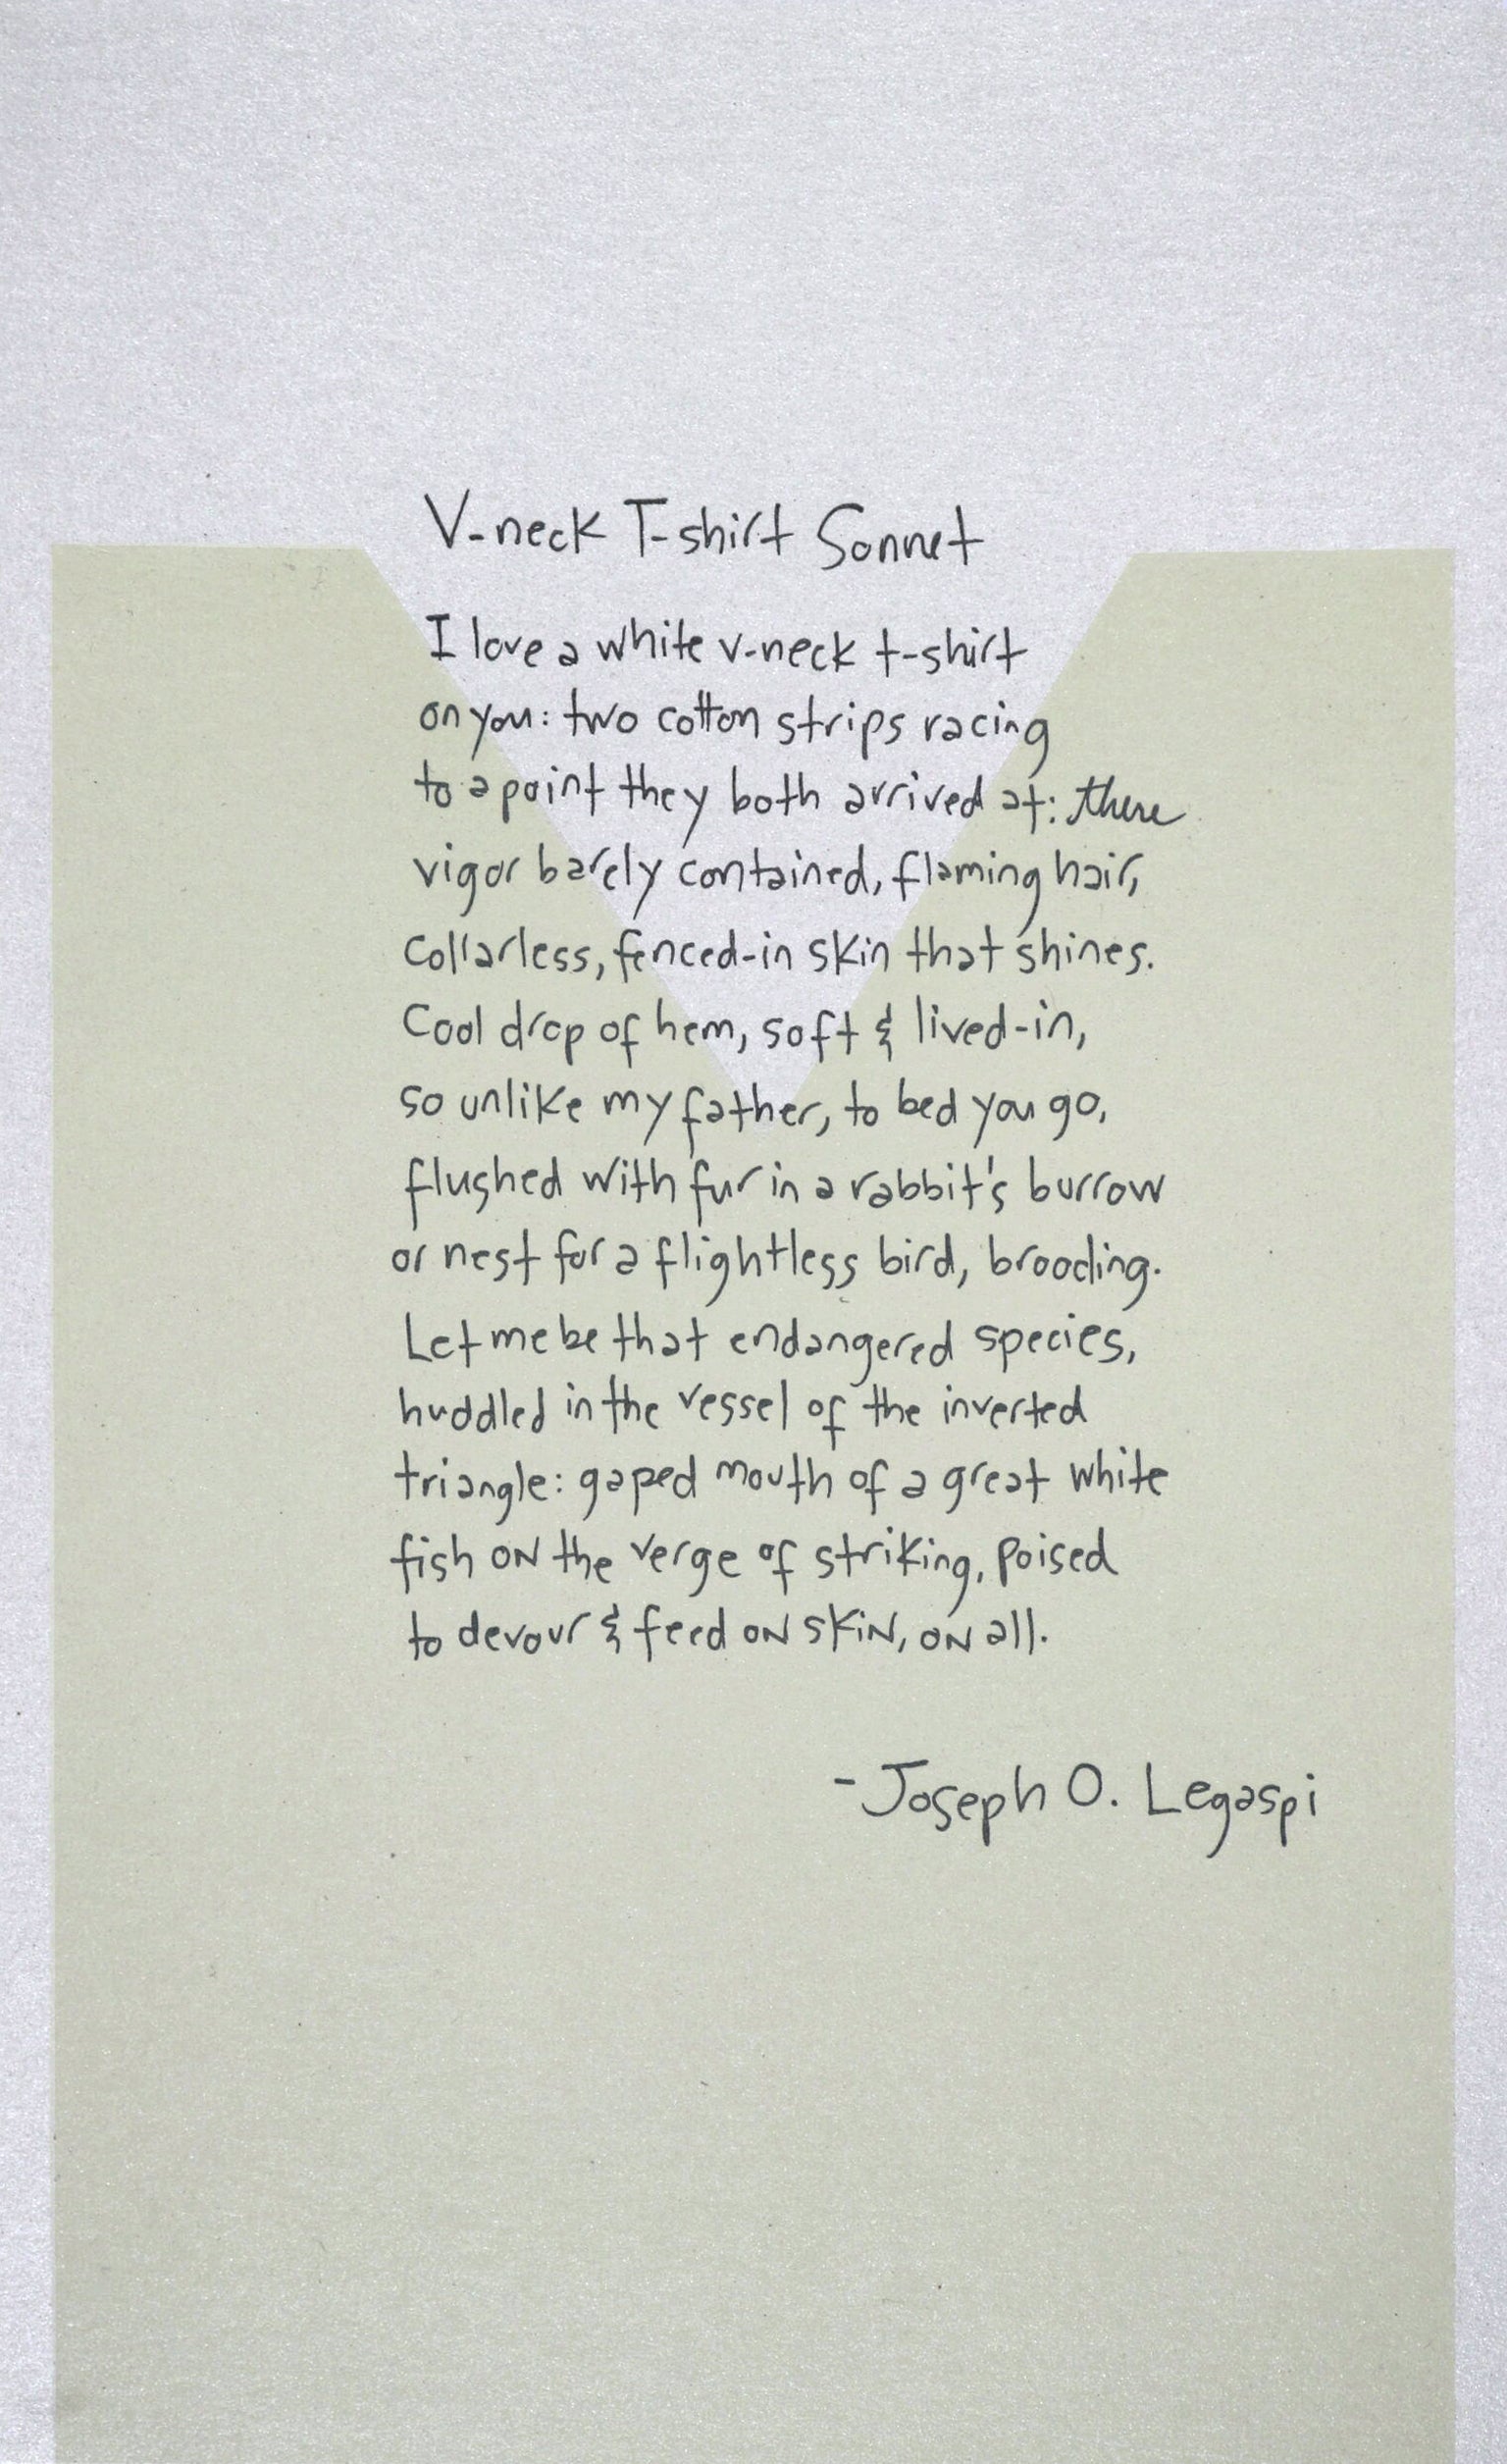 V-neck T-shirt Sonnet
I love a white v-neck t-shirt
on you: two cotton strips racing
to a point they both arrived at: there
vigor barely contained, flaming hair,
collarless, fenced-in skin that shines.
Cool drop of hem, soft & lived-in,
so unlike my father, to bed you go,
flushed with fur in a rabbit's burrow
or nest for a flightless bird, brooding.
Let me be that endangered species,
huddled in the vessel of the inverted
triangle: gaped mouth of a great white
fish on the verge of striking, poised
to devour & feed on skin, on all.
- Joseph O. Legaspi